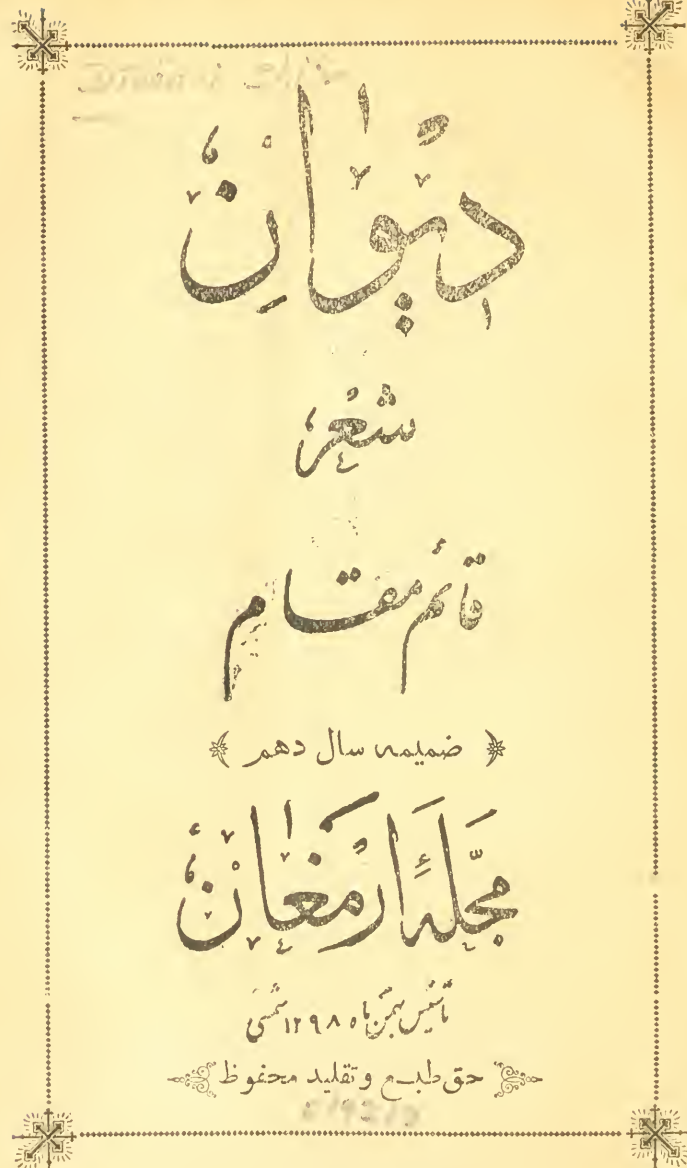 دیوانِ
شعر
قائم مقام
﴿ ضمیمه سال دهم ﴾
مجلهٔ ارمغان
تأسیس بهمن ماه ۱۲۹۸ شمسی
حق طبع و تقلید محفوظ